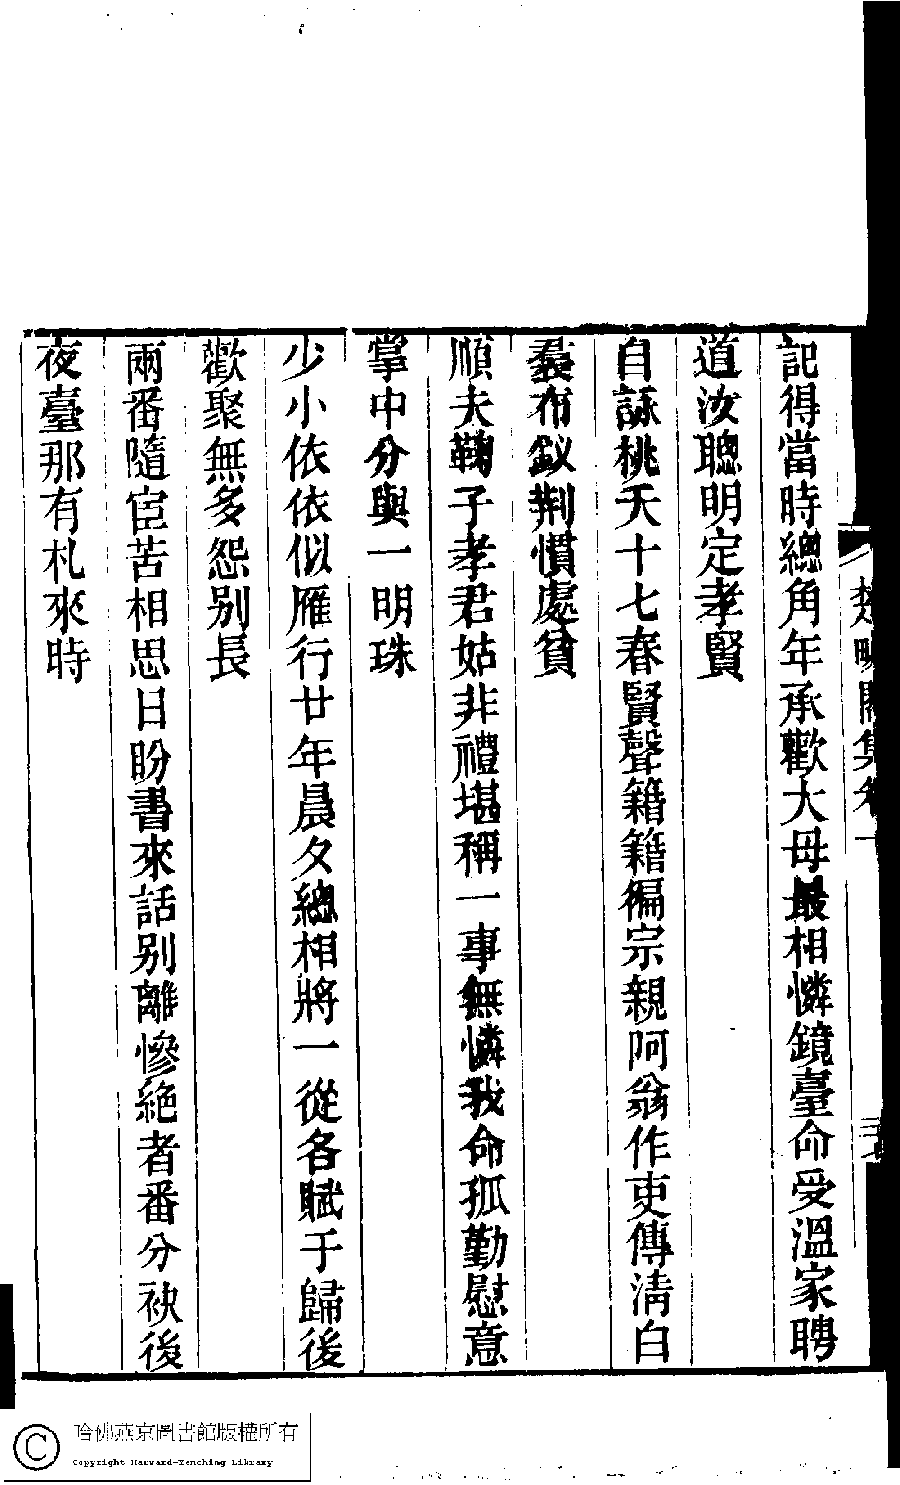 記得當時總角年承歡大母最相憐鏡臺命受溫家聘
道汝聰明定孝賢
自詠桃夭十七春賢聲籍籍徧宗親阿翁作吏傳淸白
裠布釵荆慣處貧
順夫鞠子孝君姑非禮堪稱一事無憐我命孤勤慰意
掌中分與一明珠
少小依依似雁行廿年晨夕總相將一從各賦于歸後
歡聚無多怨别長
兩番隨宦苦相思日盼書來話别離慘絶者番分袂後
夜臺那有札來時
集卷一
哈佛燕京圖書館版權所有
Copyright Harvard-Yenching Library